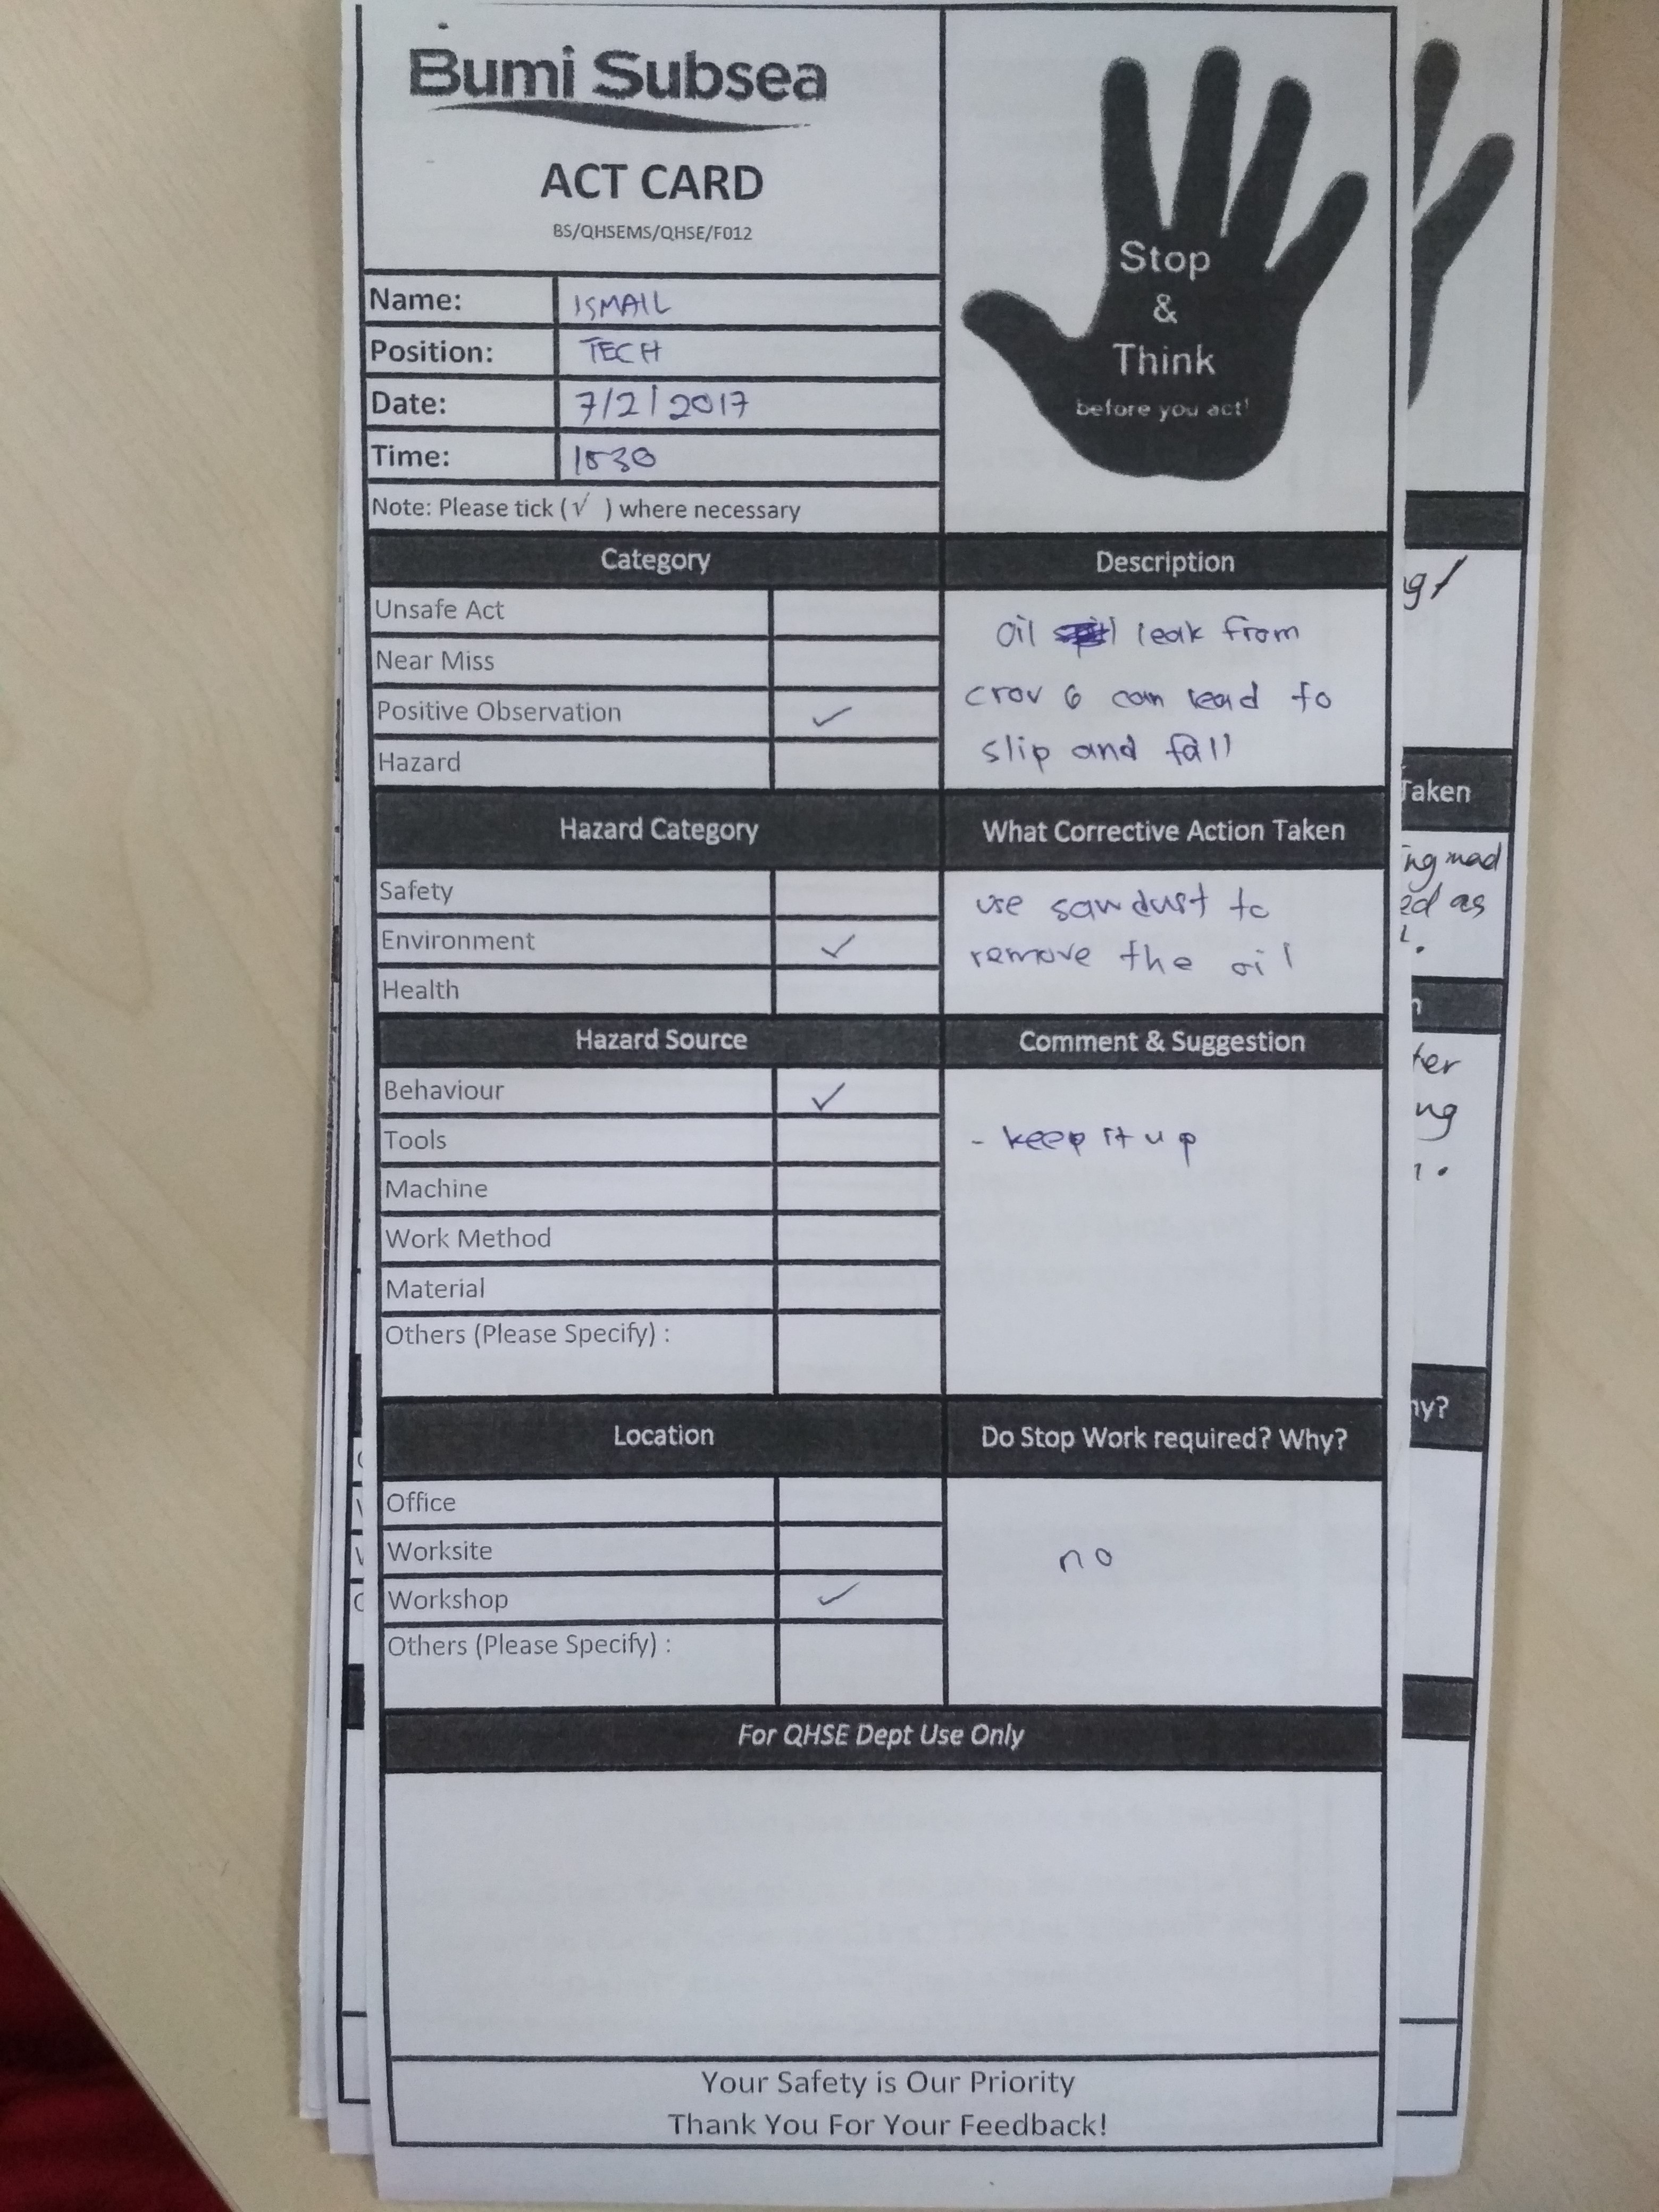 Bumi Subsea
ACT CARD
BS/QHSEMS/QHSE/F012
Stop
&
Think
before you act!
Name: ISMAIL
Position: TECH
Date: 7/2/2017
Time: 1530
Note: Please tick (√ ) where necessary
Category
Unsafe Act
Near Miss
Positive Observation ✓
Hazard
Description
oil leak from
crov 6 can lead to
slip and fall
Hazard Category
Safety
Environment ✓
Health
What Corrective Action Taken
use sawdust to
remove the oil
Hazard Source
Behaviour ✓
Tools
Machine
Work Method
Material
Others (Please Specify) :
Comment & Suggestion
- keep it up
Location
Office
Worksite
Workshop ✓
Others (Please Specify) :
Do Stop Work required? Why?
no
For QHSE Dept Use Only
Your Safety is Our Priority
Thank You For Your Feedback!
Taken
ed as